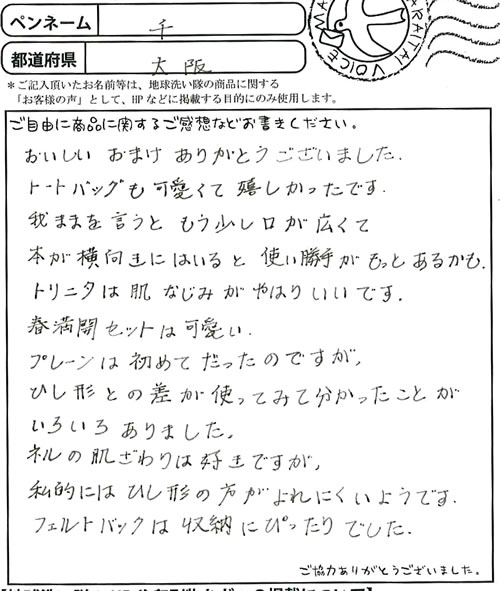 ペンネーム 千
ARAITAI VOICE
都道府県 大阪
*ご記入頂いたお名前等は、地球洗い隊の商品に関する
「お客様の声」として、HPなどに掲載する目的にのみ使用します。
ご自由に商品に関するご感想などお書きください。
おいしい おまけ ありがとうございました.
トートバッグも 可愛くて 嬉しかったです.
我ままを 言うと もう少し口が 広くて
本が横向きにはいると 使い勝手が もっと あるかも.
トリニタは 肌 なじみが やはり いいです.
春満開セットは 可愛い.
プレーンは 初めて だったのですが,
ひし形との差が 使ってみて分かったことが
いろいろ ありました.
ネルの 肌ざわりは 好きですが,
私的には ひし形の 方が よれにくいようです.
フェルトバックは 収納に ぴったり でした.
ご協力ありがとうございました。